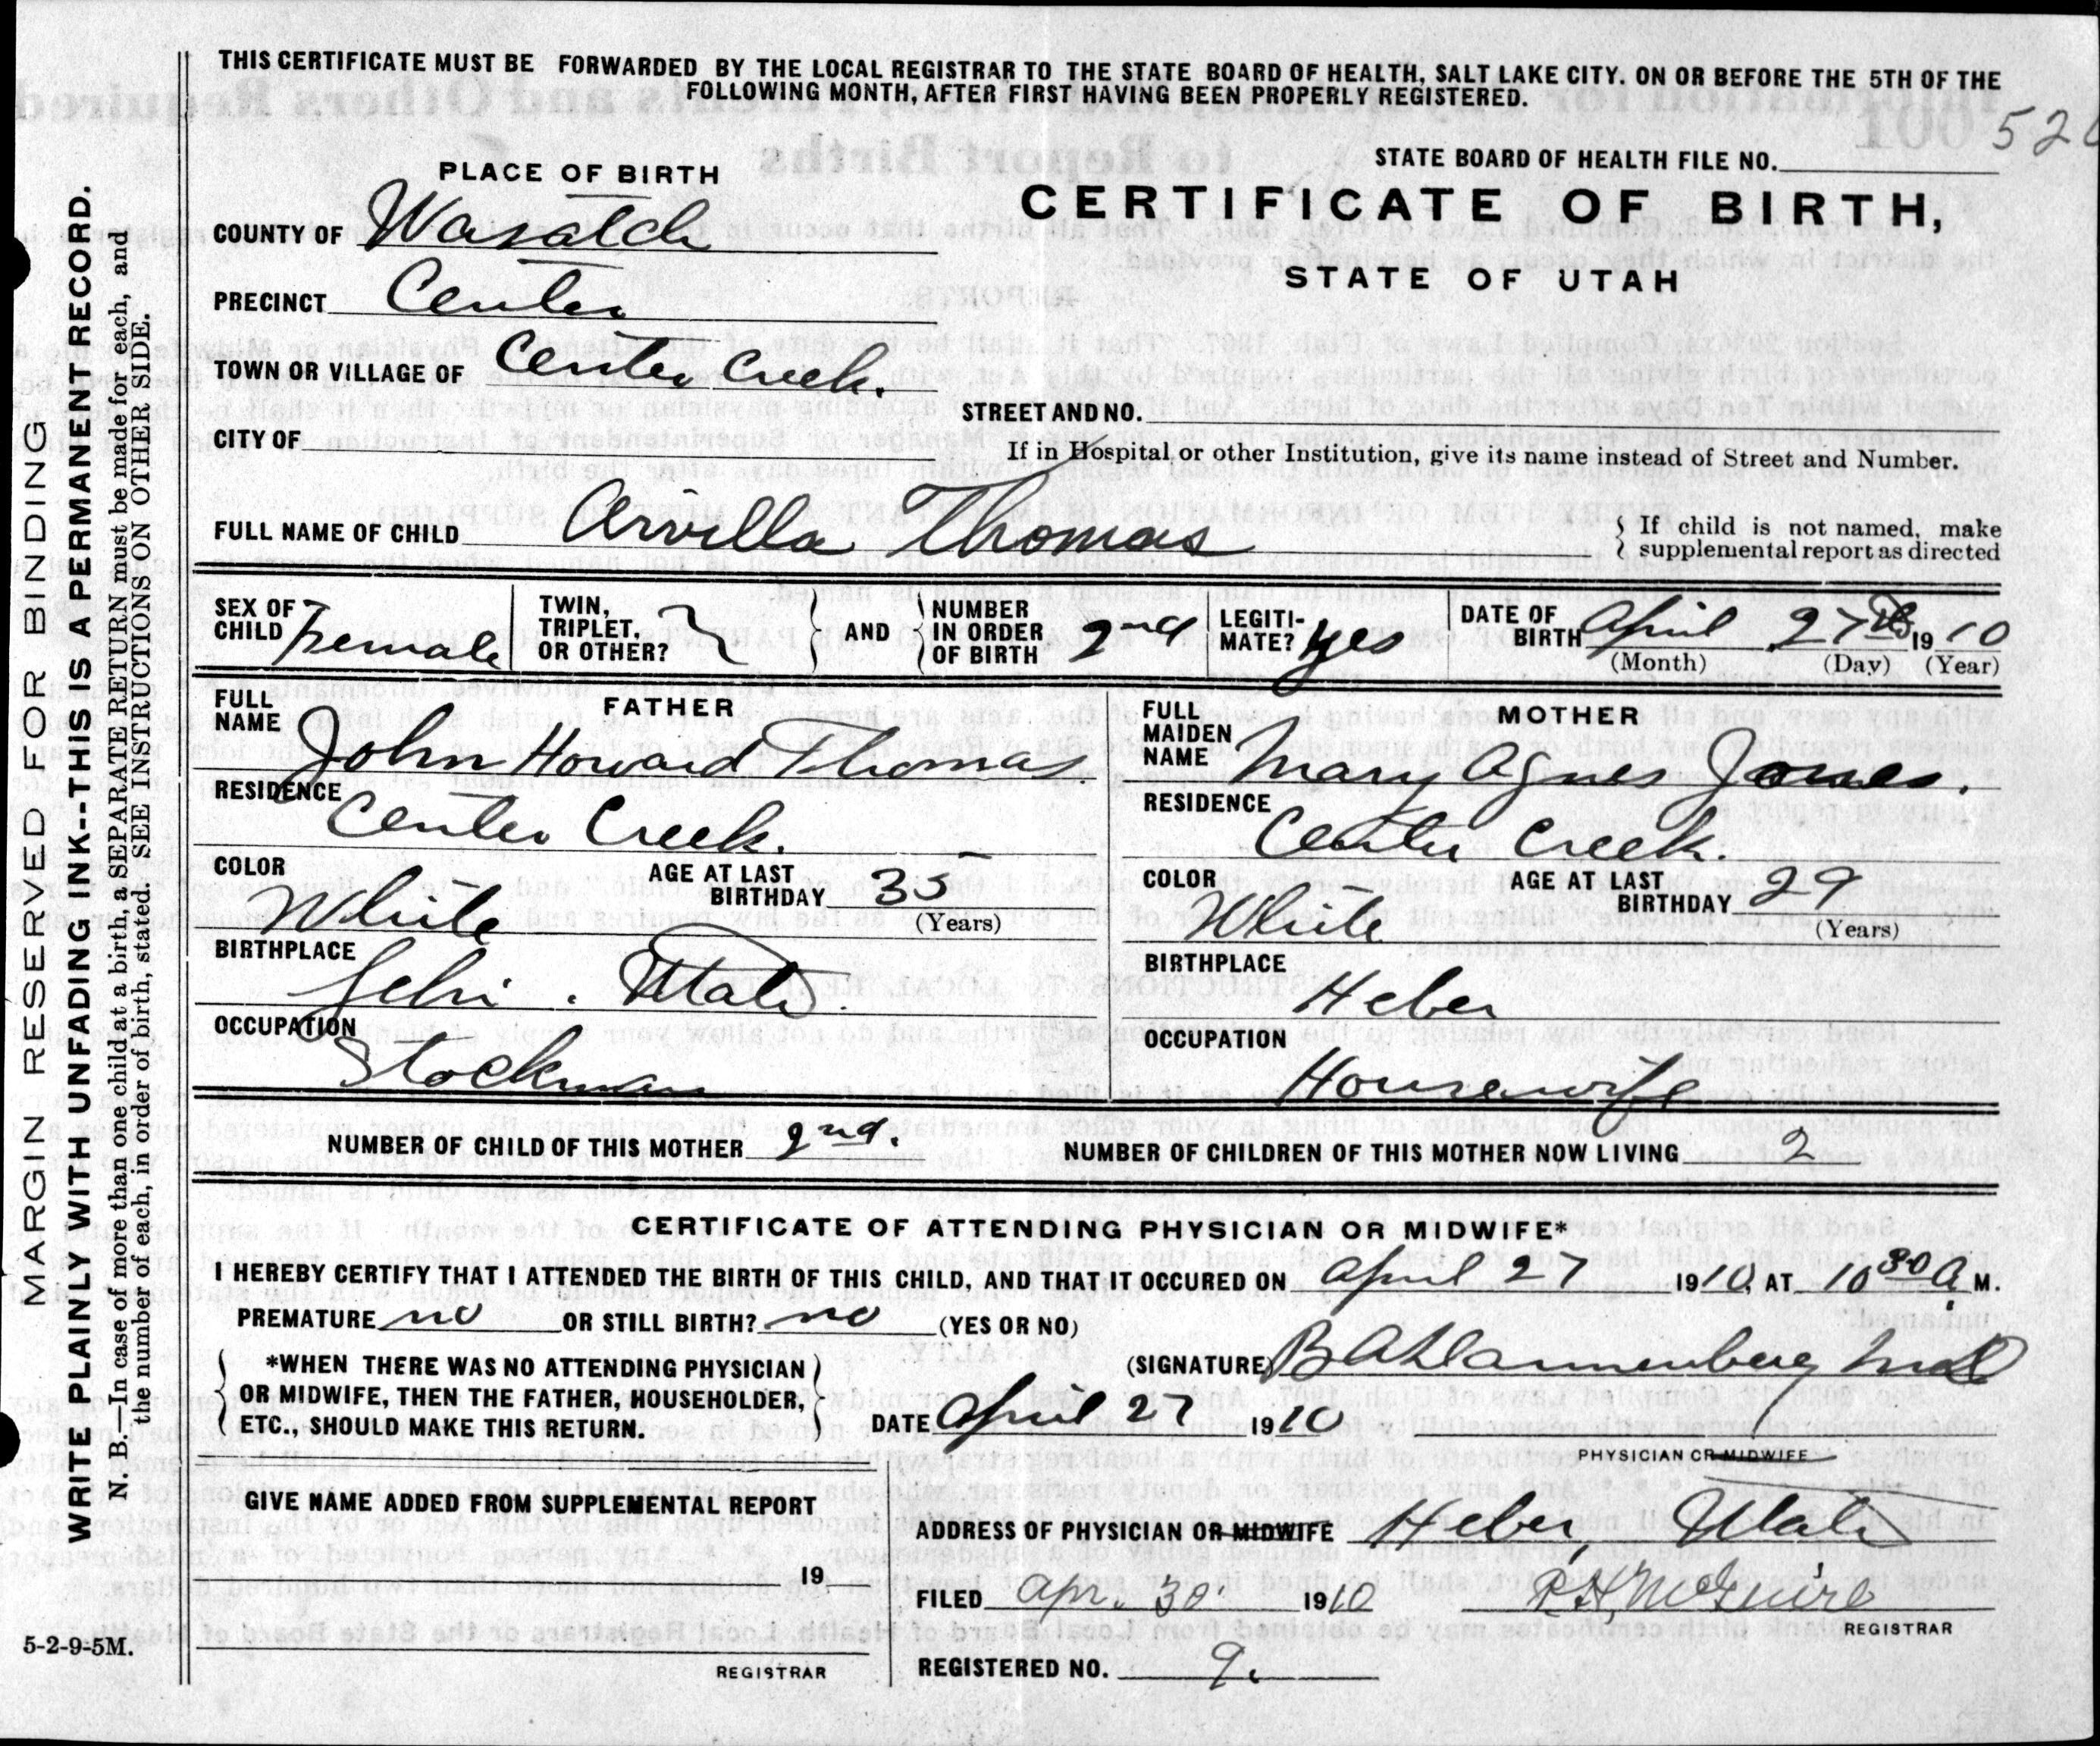 THIS CERTIFICATE MUST BE FORWARDED BY THE LOCAL REGISTRAR TO THE STATE BOARD OF HEALTH, SALT LAKE CITY. ON OR BEFORE THE 5TH OF THE
FOLLOWING MONTH, AFTER FIRST HAVING BEEN PROPERLY REGISTERED.
100 526
STATE BOARD OF HEALTH FILE NO.
PLACE OF BIRTH
CERTIFICATE OF BIRTH,
STATE OF UTAH
COUNTY OF Wasatch
PRECINCT Center
TOWN OR VILLAGE OF Center Creek.
STREET AND NO.
CITY OF
If in Hospital or other Institution, give its name instead of Street and Number.
FULL NAME OF CHILD Arvilla Thomas
If child is not named, make
supplemental report as directed
SEX OF CHILD Female
TWIN, TRIPLET, OR OTHER?
AND
NUMBER IN ORDER OF BIRTH 2nd
LEGITI-MATE? yes
DATE OF BIRTH April 27th 1910
(Month) (Day) (Year)
FATHER
FULL NAME John Howard Thomas
RESIDENCE Center Creek.
COLOR White
AGE AT LAST BIRTHDAY 35
(Years)
BIRTHPLACE Lehi. Utah.
OCCUPATION Stockman
MOTHER
FULL MAIDEN NAME Mary Agnes Jones.
RESIDENCE Center Creek.
COLOR White
AGE AT LAST BIRTHDAY 29
(Years)
BIRTHPLACE Heber
OCCUPATION Housewife
NUMBER OF CHILD OF THIS MOTHER 2nd.
NUMBER OF CHILDREN OF THIS MOTHER NOW LIVING 2
CERTIFICATE OF ATTENDING PHYSICIAN OR MIDWIFE*
I HEREBY CERTIFY THAT I ATTENDED THE BIRTH OF THIS CHILD, AND THAT IT OCCURED ON April 27 1910, AT 10 30 A. M.
PREMATURE no OR STILL BIRTH? no (YES OR NO)
*WHEN THERE WAS NO ATTENDING PHYSICIAN
OR MIDWIFE, THEN THE FATHER, HOUSEHOLDER,
ETC., SHOULD MAKE THIS RETURN.
(SIGNATURE)
DATE April 27 1910
PHYSICIAN OR MIDWIFE
GIVE NAME ADDED FROM SUPPLEMENTAL REPORT
19
REGISTRAR
ADDRESS OF PHYSICIAN OR MIDWIFE Heber, Utah
FILED Apr. 30 1910 R H McGuire
REGISTRAR
REGISTERED NO. 9.
MARGIN RESERVED FOR BINDING
WRITE PLAINLY WITH UNFADING INK---THIS IS A PERMANENT RECORD.
N. B.—In case of more than one child at a birth, a SEPARATE RETURN must be made for each, and
the number of each, in order of birth, stated. SEE INSTRUCTIONS ON OTHER SIDE.
5-2-9-5M.